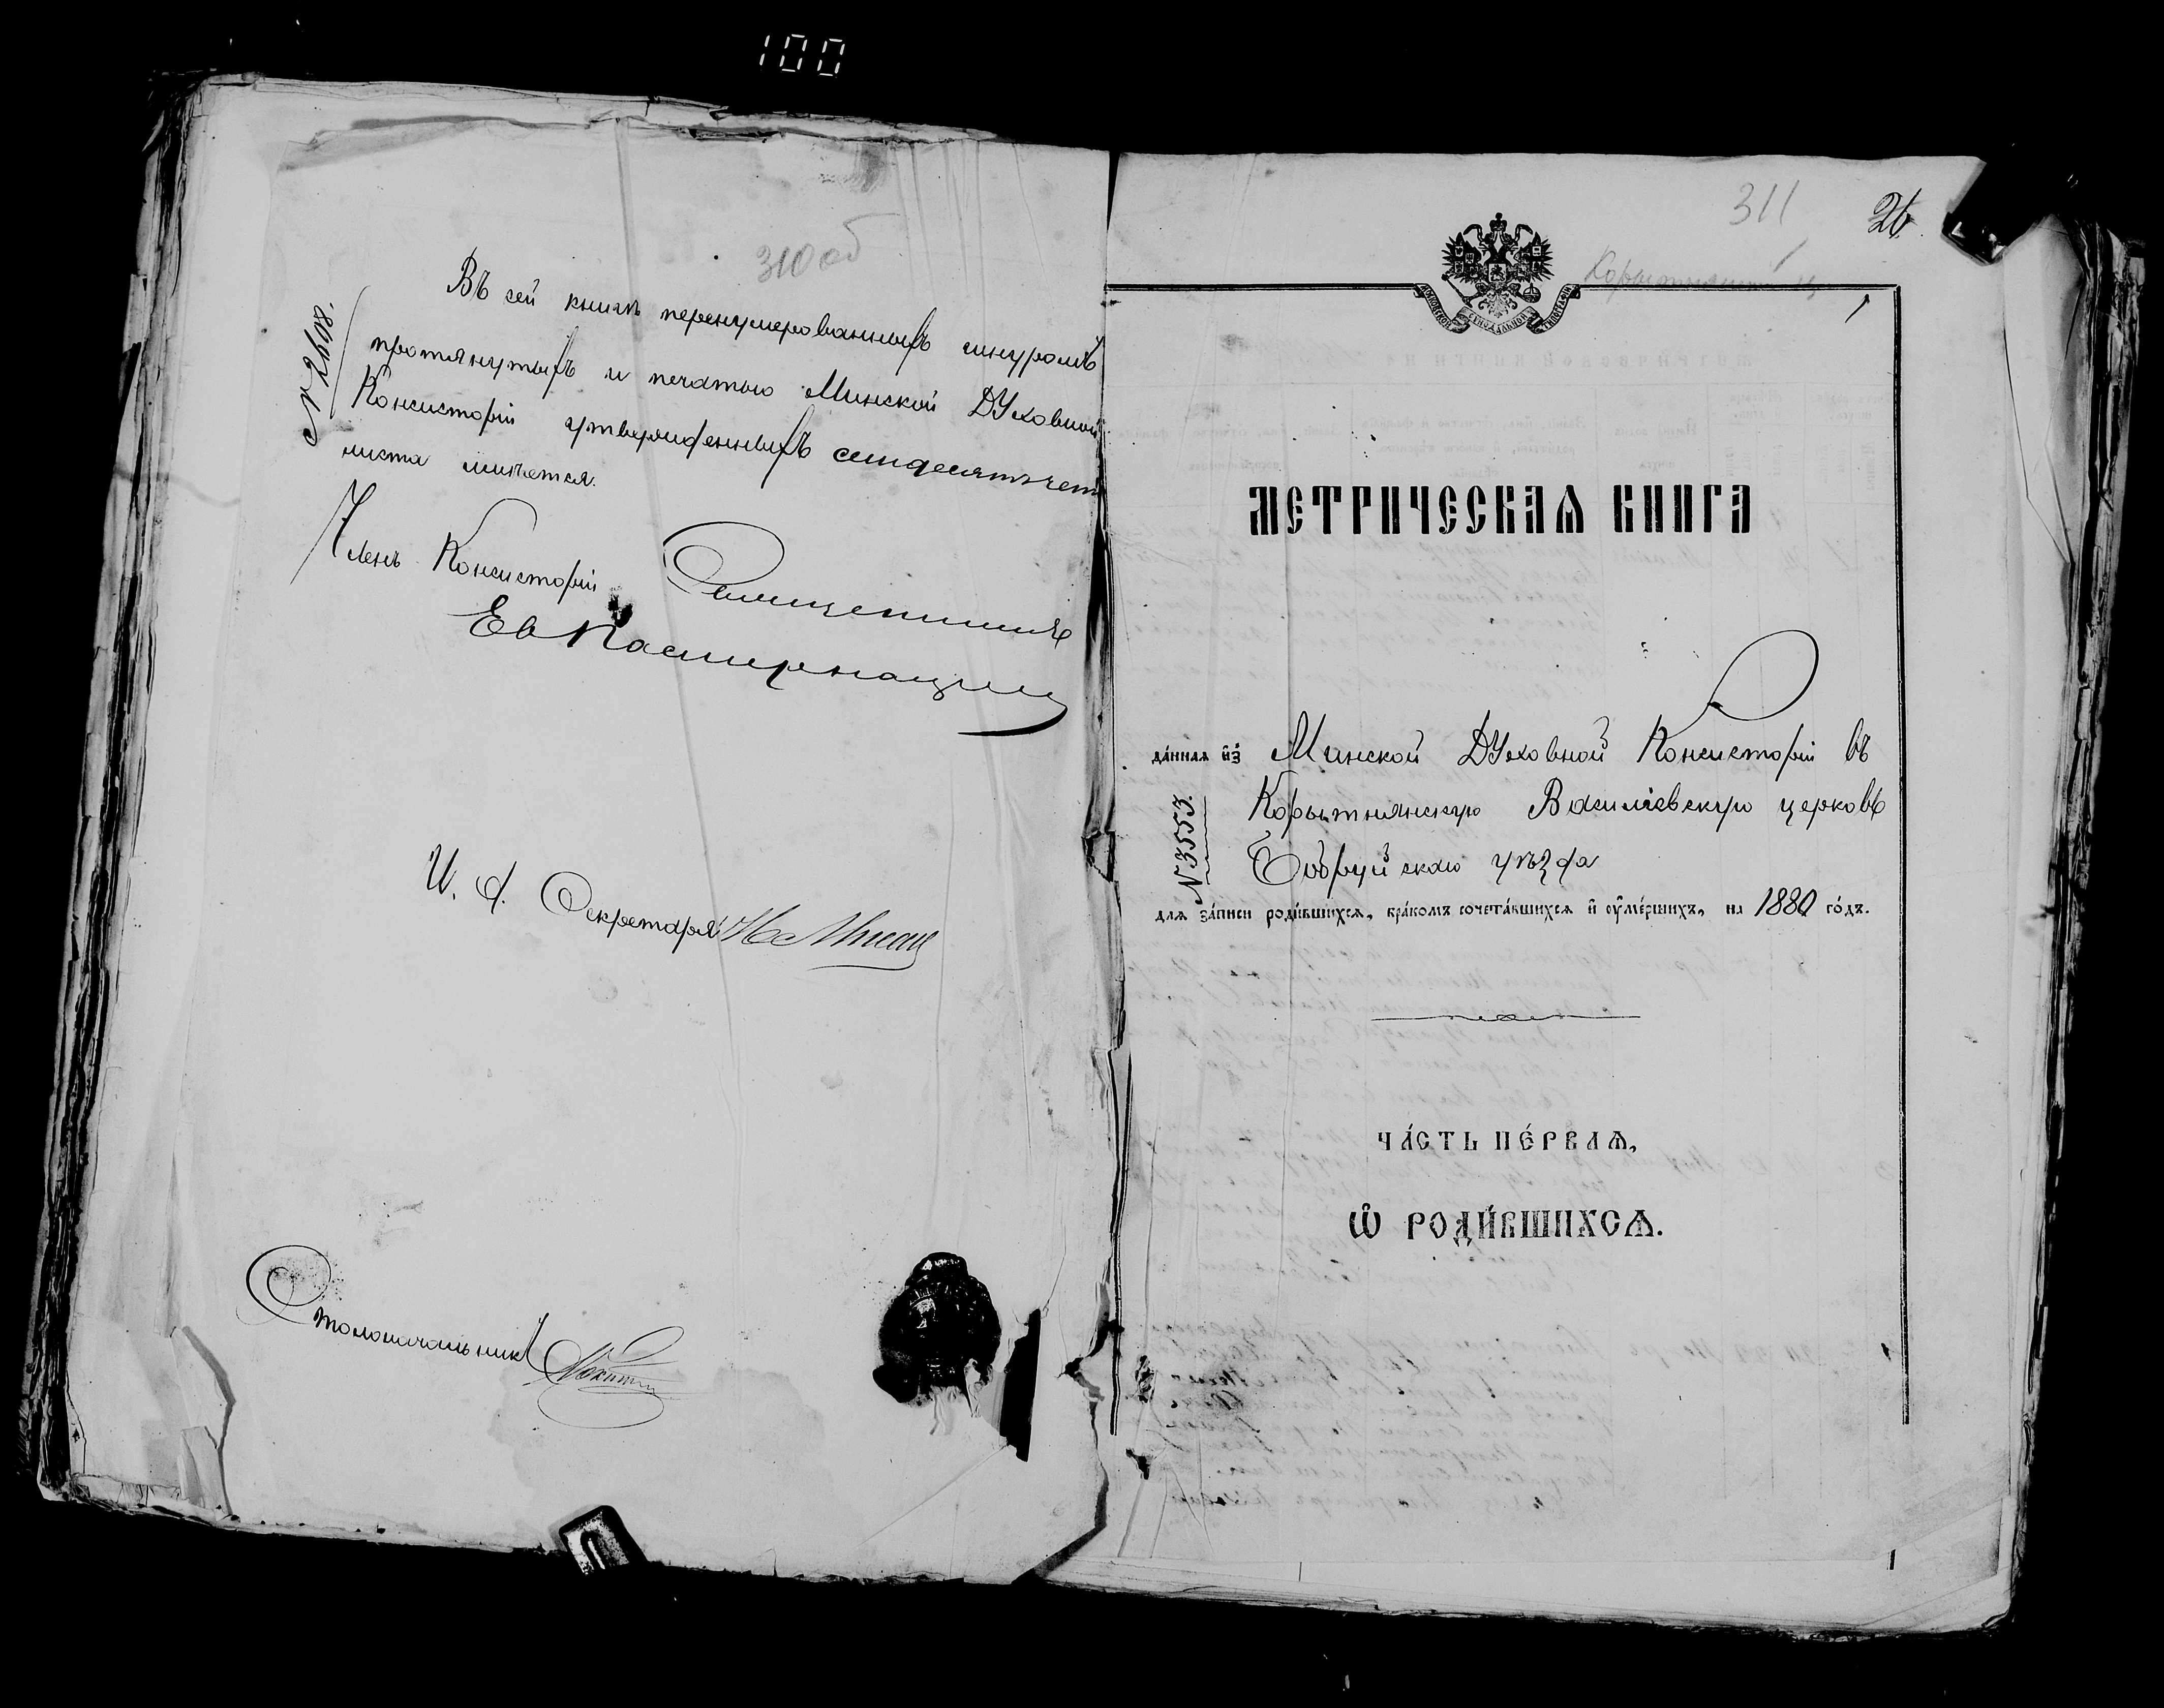 100
310 об
№ 2608.
Въ сей книгѣ перенумерованныхъ шнуромъ
протянутыхъ и печатью Минской Духовной
Консисторіи утвержденныхъ семьдесятъ чет
листа имѣется.
Членъ Консисторіи Священникъ
И. д. Секретаря
Столоначальникъ
311
26
1
МОСКОВСКОЙ СѴНОДАЛЬНОЙ ТИПОГРАФІИ
МЕТРИЧЕСКАѦ КНИГА
да́ннаѧ и҆з̾ Минской Духовной Консисторіи въ
Корытнянскую Василіевскую церковь
Бобруйскаго уѣзда
№ 3553.
для за́писи роди́вшихсѧ, бра́комъ сочета́вшихсѧ и҆ ᲂу҆ме́ршихъ, на 1880 го́дъ.
ЧА́СТЬ ПЕ́РВАѦ,
Ѽ РОДИ́ВШИХСѦ.